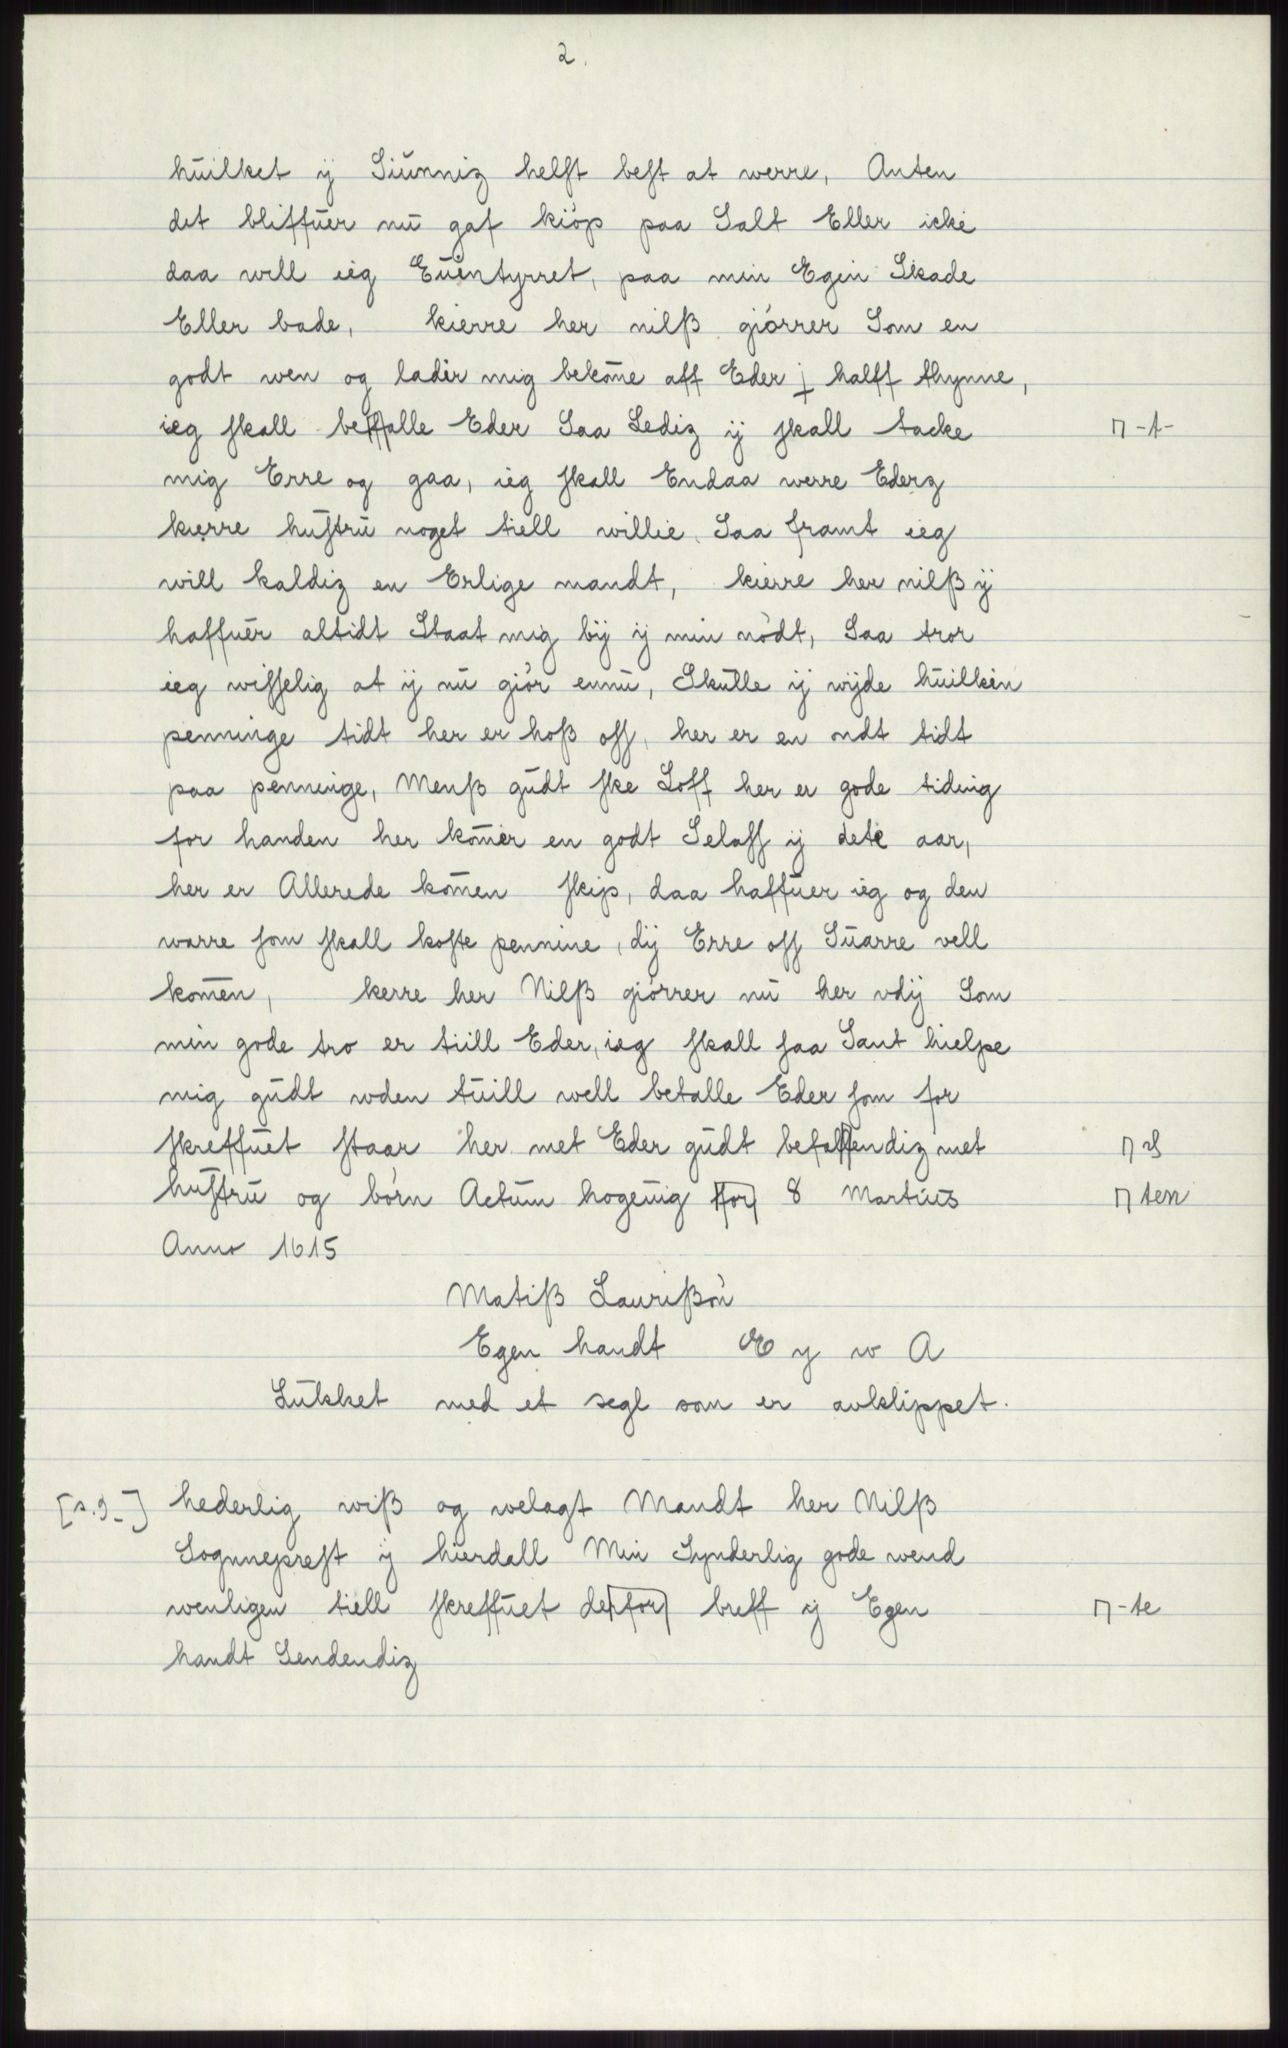 2.
huilket ÿ Siunniz helst best at werre, Anten
det bliffuer nu gaf kiöp paa Salt Eller icke
daa will ieg Euentyrret, paa min Egen Skade
Eller bade, kierre her nilß giörrer Som en
godt wen og lader mig bekome aff Eder ½ halff thynne,
ieg skall bettalle Eder Saa Lediz ÿ skall tacke ⊓ -t-
mig Erre og gaa, ieg skall Endaa werre Ederz
kierre hustru noget tiell willie, Saa framt ieg
will kaldiz en Erlige mandt, kierre her nilß ÿ
haffuer altidt Staat mig bÿ ÿ min nödt, Saa tror
ieg wisselig at ÿ nu giör ennu, Skulle ÿ wÿde huilken
penninge tidt her er hoß oss, her er en ondt tidt
paa penninge, Menß gudt ske Loff her er gode tiding
for handen her komer en godt Selaff ÿ dete aar,
her er Allerede komen skip, daa haffuer ieg og den
warre som skall koste pennine, dÿ Erre oss Suarre vell
komen, kerre her Nilß giörrer nu her vdÿ Som
min gode tro er tiill Eder, ieg skall saa Sant hielpe
mig gudt wden tuill well betalle Eder som for
skreffuet staar her met Eder gudt befallendiz met ⊓ ls
hustru og börn Actum hogeuig for 8 Martius ⊓ ten
Anno 1615
Matiß Laurißön
Egen handt E y w A
Lukket med et segl som er avklippet.
[s. 2_] hederlig wiß og welagt Mandt her Nilß
Sognneprest ÿ hierdall Min Synderlig gode wend
wenligen tiell skreffuet de for breff ÿ Egen ⊓ -te
handt Sendendiz